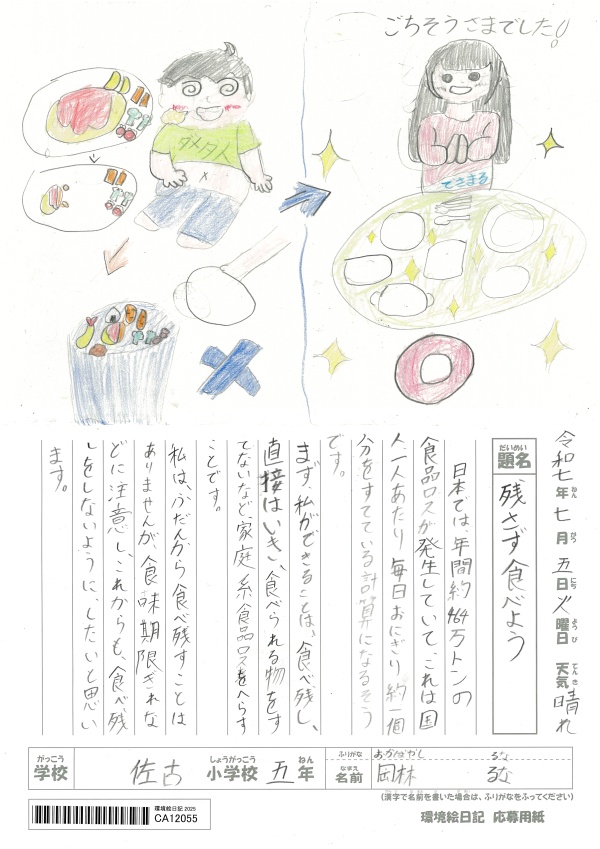 ごちそうさまでした!!
ダメタ人
できまる
令和七年ねん七月がつ五日にち火曜日ようび 天気てんき 晴れ
だいめい
題名
残さず食べよう
日本では、年間約464万トンの
食品ロスが発生していて、これは国
人一人あたり毎日おにぎり約一個
分をすてている計算になるそう
です。
まず、私ができることは、食べ残し、
直接はいき、食べられる物をす
てないなど、家庭系食品ロスをへらす
ことです。
私は、ふだんから食べ残すことは
ありませんが、食味期限ぎれな
どに注意し、これからも、食べ残
しをしないように、したいと思い
ます。
がっこう
学校
佐古
しょうがっこう
小学校
五
ねん
年
ふりがな
おかばやし るな
なまえ
名前
岡林 るな
(漢字で名前を書いた場合は、ふりがなをふってください)
環境絵日記 2025
CA12055
環境絵日記 応募用紙